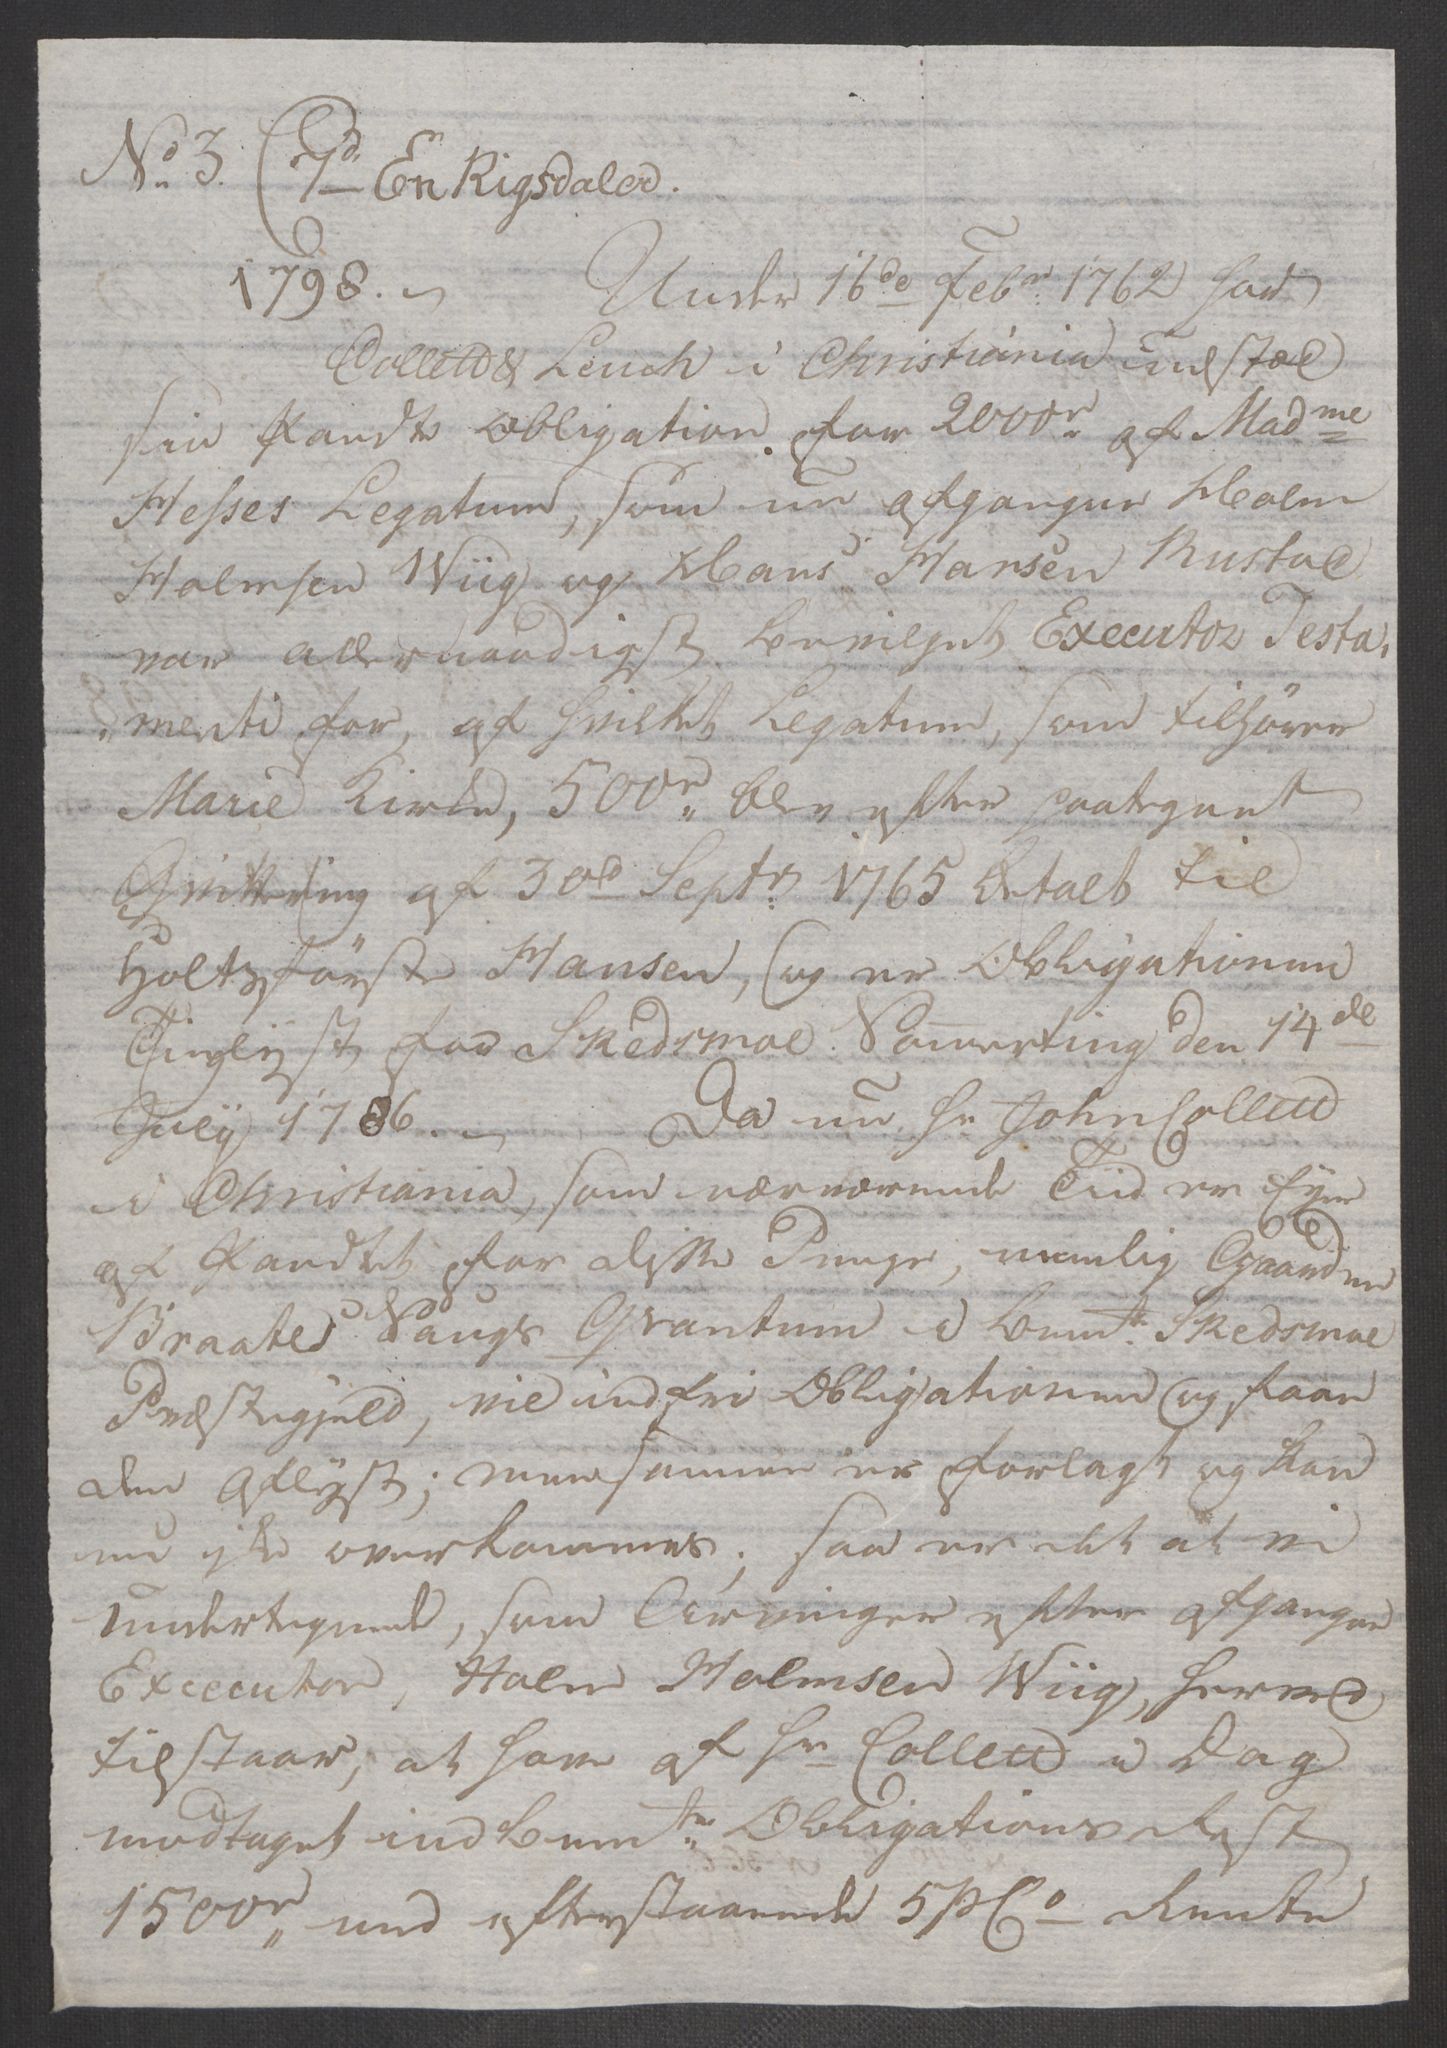 No 3. 1rd En Rigsdaler.
1798. Under 16de Febr 1762 har
Collett & Leuch i Christiania udstæd
sin Pandte Obligation for 2000r af Madme
Hesses Legatum, som nu afgangne Holm
Holmsen Wiig og Hans Hansen Rustad
var allernaadigst bevilget Executor Testa,
menti for, af hvilket Legatum, som tilhører
Marie Kirke, 500r blev efter paategnet
Qvittering af 30d Septr 1765 betalt til
Holtzførster Hansen, og er Obligationen
Tinglyst for Skedsmoe Sommerting den 14de
July 1786. Da nu Hr John Collett
i Christiania, som nærværende Tiid er Eyer
af Pandtet for disse Penge, nemlig Gaarden
Braates Saugs Qvantum i bemte Skedsmoe
Præstegjeld, vil indfri Obligationen og faae
den aflyst; men samme er forlagt og kan
nu ike overkommes; saa er det at vi
undertegnede, som Arvinger efter afgangne
Executor, Holm Holmsen Wiig, herved
tilstaar, at have af Hr Collett i Dag
modtaget indbemte Obligations Rest
1500r med efterstaaende 5 pCo Rente